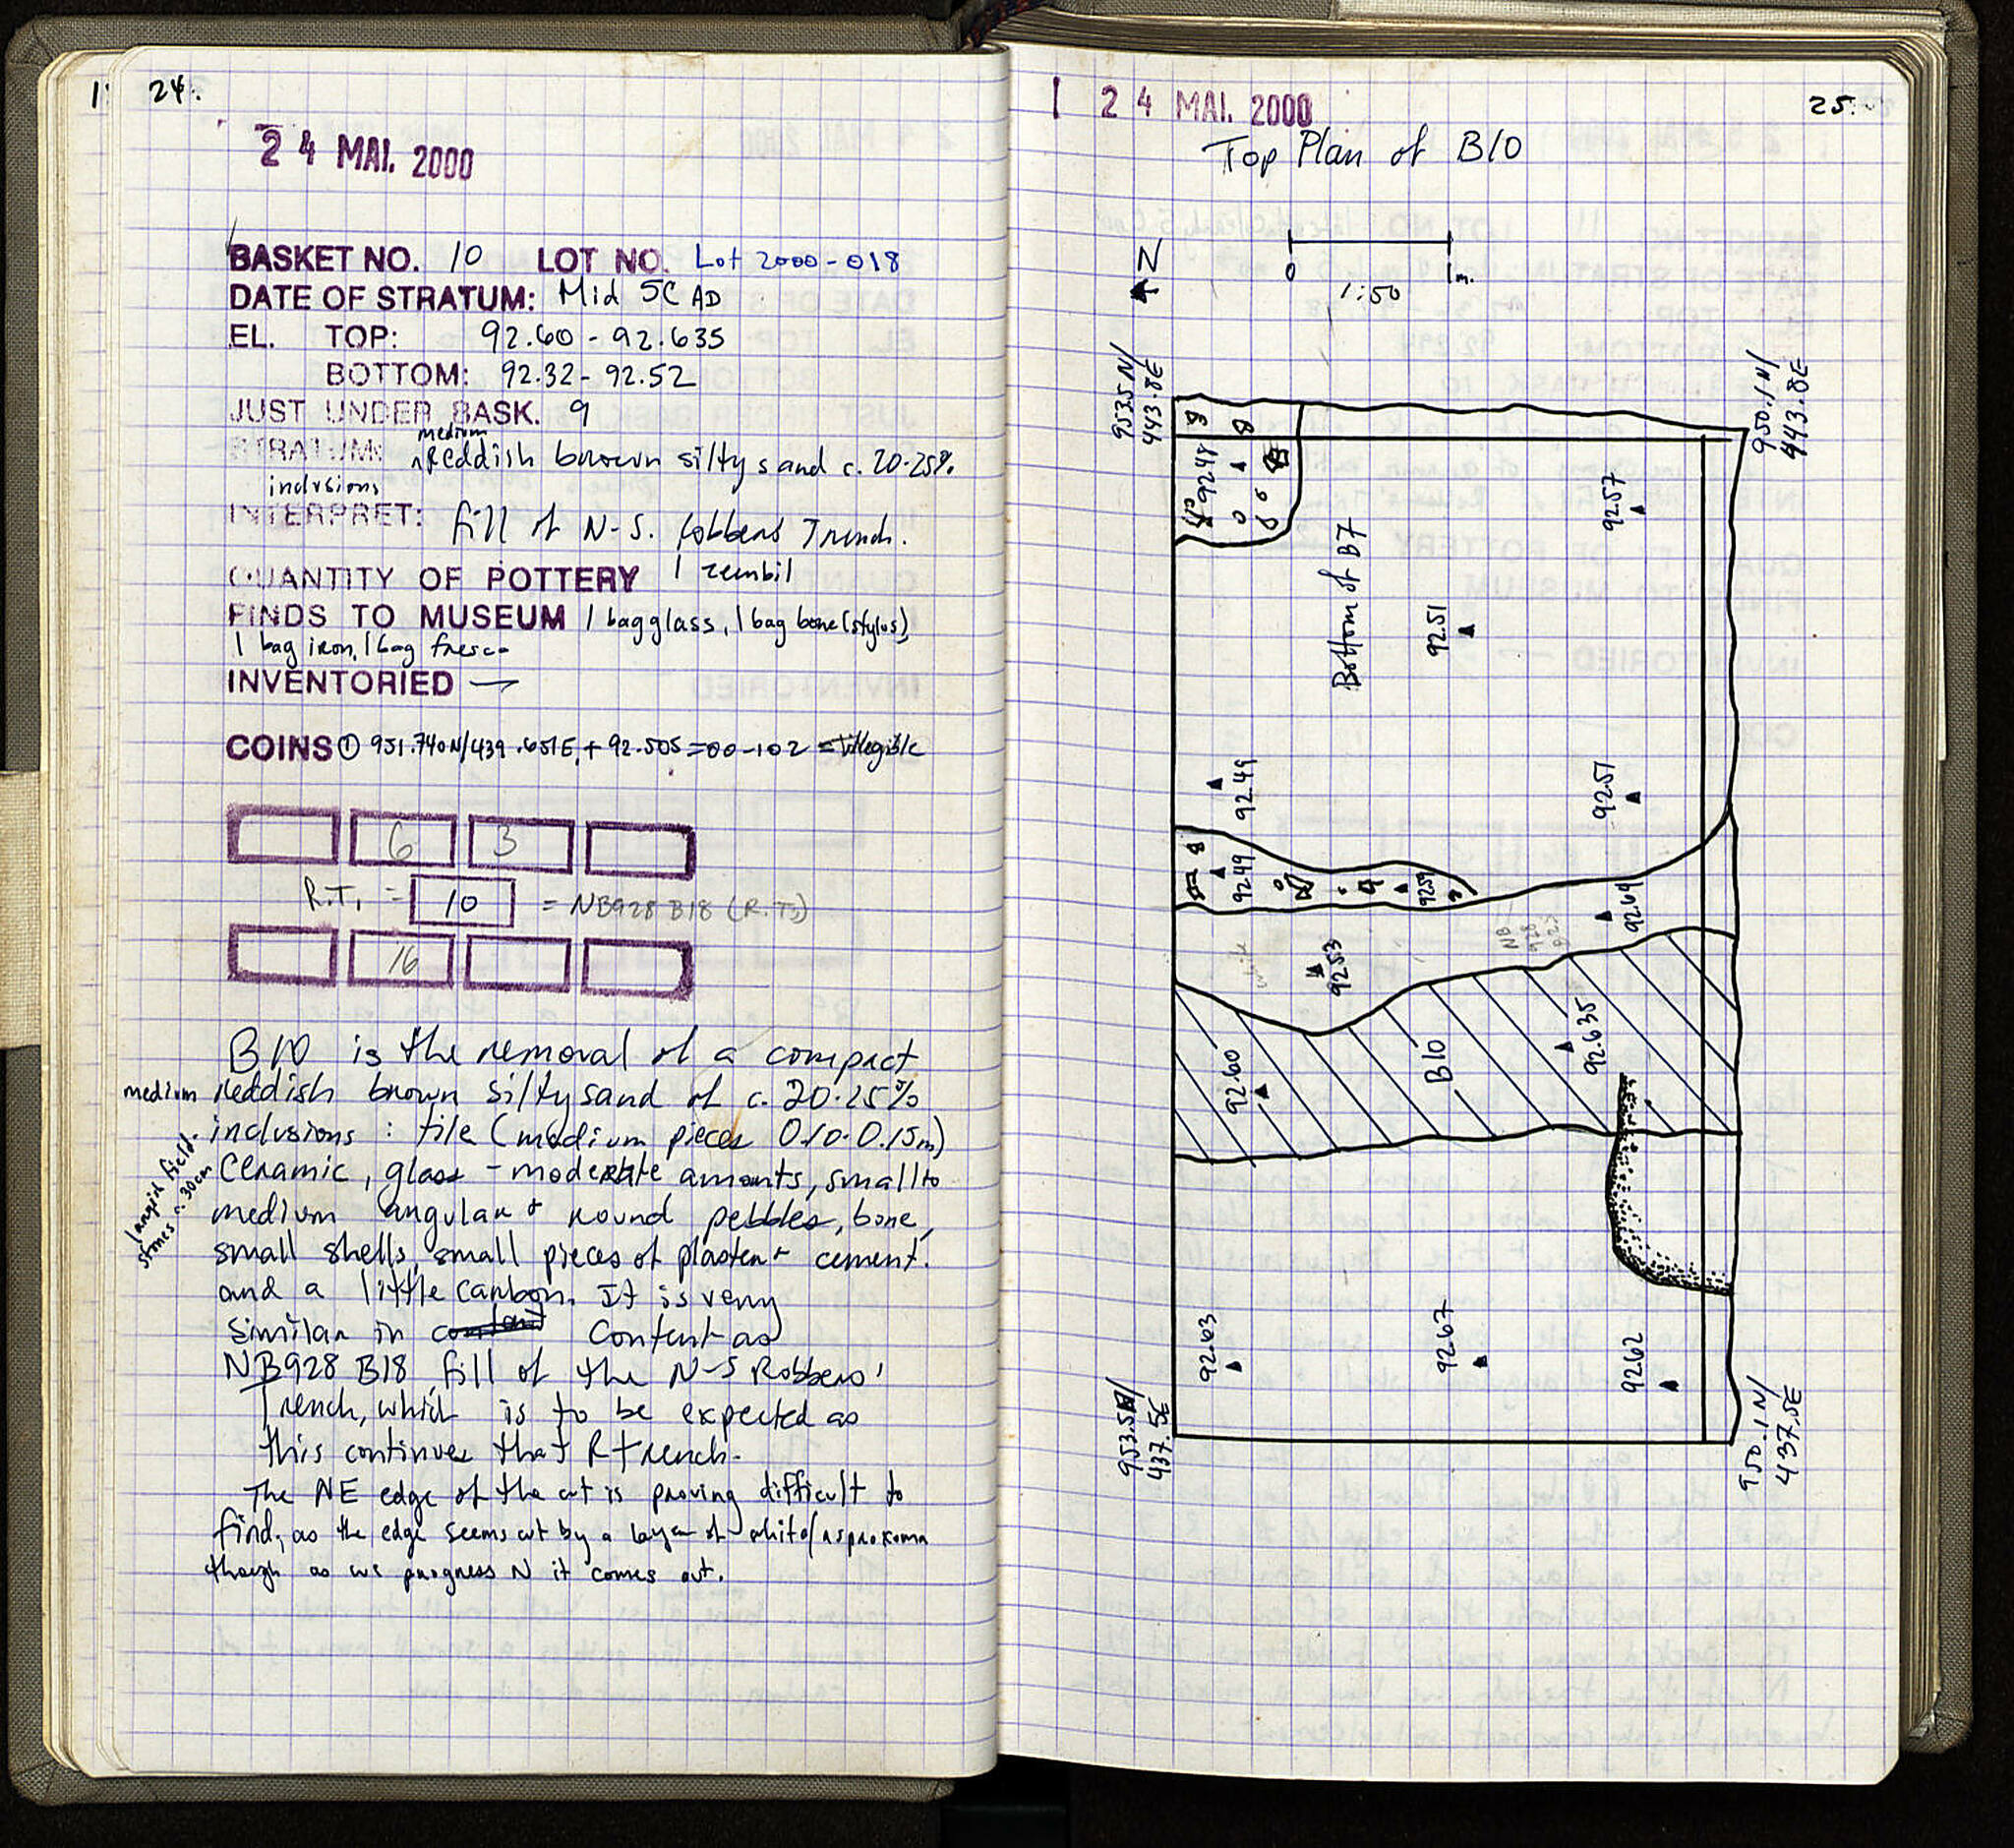 24.
24 MAI. 2000
BASKET NO. 10 LOT NO. Lot 2000-018
DATE OF STRATUM: Mid 5C AD
EL. TOP: 92.60 - 92.635
BOTTOM: 92.32 - 92.52
JUST UNDER BASK. 9
medium
STRATUM: Reddish brown silty sand c. 20-25%
inclusions
INTERPRET: fill of N-S. robbers Trench.
QUANTITY OF POTTERY 1 zembil
FINDS TO MUSEUM 1 bag glass, 1 bag bone (stylus),
1 bag iron, 1 bag fresco
INVENTORIED —
COINS ① 951.740N/439.651E, + 92.505 = 00-102 = Illegible
6 3
R.T. = 10 = NB928 B18 (R.T.)
16
B10 is the removal of a compact
medium Reddish brown silty sand of c. 20-25%
inclusions: tile (medium pieces 0.10-0.15m)
ceramic, glass - moderate amounts, small to
large field
stones c. 30cm
medium angular + round pebbles, bone,
small shells, small pieces of plaster + cement.
and a little carbon. It is very
similar in content as
NB928 B18, fill of the N-S Robbers'
Trench, which is to be expected as
this continues that R trench.
The NE edge of the cut is proving difficult to
find, as the edge seems cut by a layer of white/asprokoma
though as we progress N it comes out.
1 24 MAI. 2000
25.
Top Plan of B10
N
0 1m.
1:50
953.5N/
443.8E
950.1N/
443.8E
92.48
92.57
Bottom of B7
92.51
92.49
92.51
92.49
92.59
92.64
NB
928
B25
white
92.53
92.60
B10
92.635
92.63
92.67
92.62
953.5N/
437.5E
950.1N/
437.5E